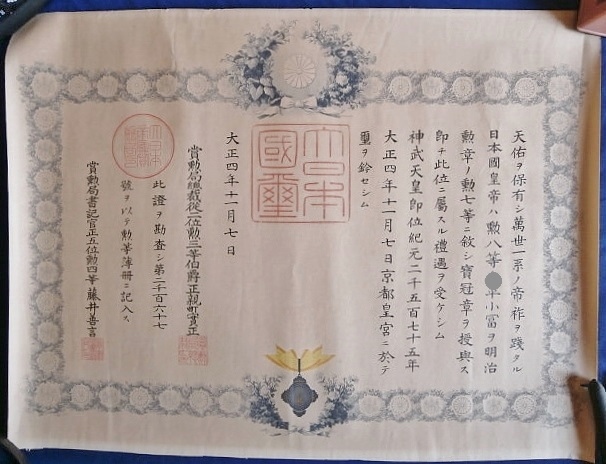 天佑ヲ保有シ萬世一系ノ帝祚ヲ踐タル
日本國皇帝ハ勲八等 平小冨ヲ明治
勲章ノ勲七等ニ敘シ寶冠章ヲ授與ス
即チ此位ニ屬スル禮遇ヲ受ケシム
神武天皇即位紀元二千五百七十五年
大正四年十一月七日京都皇宮ニ於テ
璽ヲ鈐セシム
大日本
國璽
大正四年十一月七日
賞勲局總裁從二位勲三等伯爵正親町實正
此證ヲ勘査シ第二千百六十七
號ヲ以テ勲等簿册ニ記入ス
賞勲局書記官正五位勲四等藤井善言